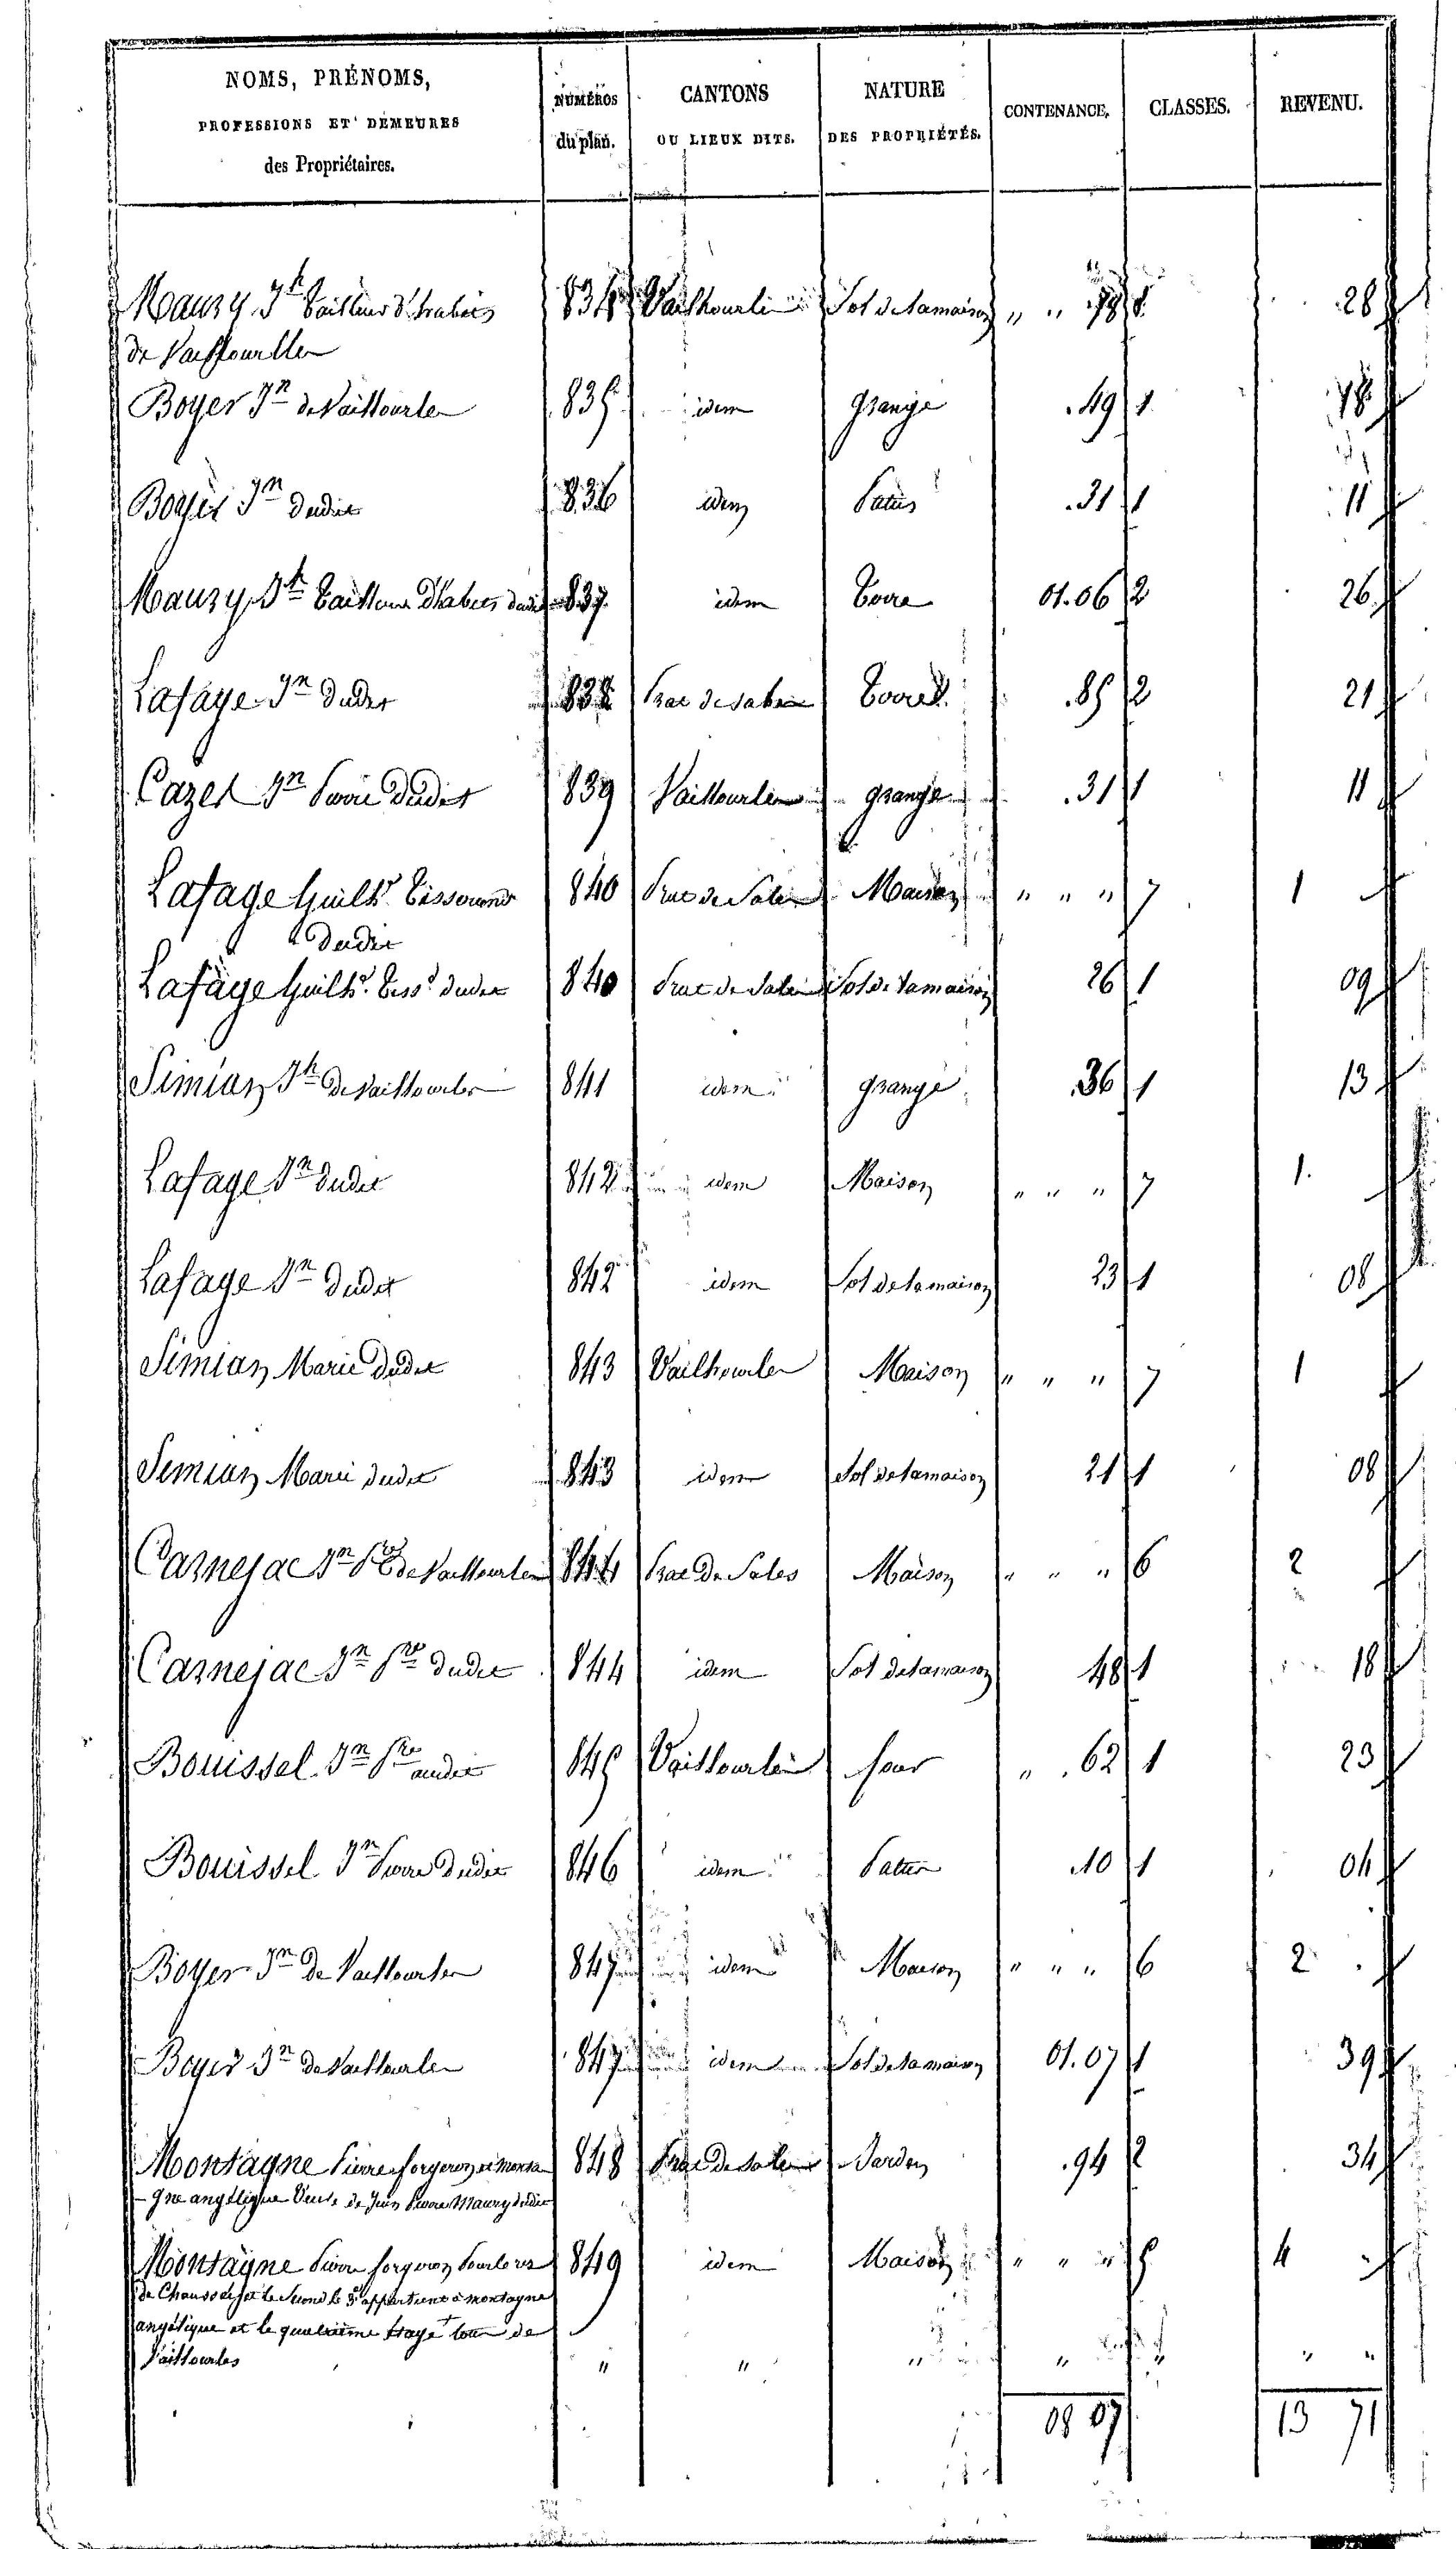 NOMS, PRÉNOMS, PROFESSIONS ET DEMEURES des Propriétaires. NUMÉROS du plan. CANTONS OU LIEUX DITS. NATURE DES PROPRIÉTÉS. CONTENANCE. CLASSES. REVENU.
Mauzy Jh tailleur d'habits 834 Vailhourle Sol de la maison " " 28
de Vailhourles
Boyer Jn de Vailhourles 835 idem grange .49 1
Boyer Jn dudit 836 idem Patus .31 1 11
Mauzy Jh tailleur d'habits dudit 837 idem 01.06 2 26
Lafage Jn dudit 838 .85 2 21
Cazes Jn Pierre dudit 839 Vailhourles grange .31 1 11
Lafage Guilhe tisserand 840 Maison " " " 7 1
dudit
Lafage Guilhe tissd dudit 840 Sol de la maison 26 1 09
Simian Jh de Vailhourles 841 idem grange .36 1 13
Lafage Jn dudit 842 idem Maison " " " 7 1.
Lafage Jn dudit 842 idem Sol de la maison 23 1 08
Simian Marie dudit 843 Vailhourles Maison " " " 7 1
Simian Marie dudit 843 idem Sol de la maison 21 1 08
Carnejac Jn Pre de Vailhourles 844 Maison " " " 6 2
Carnejac Jn Pre dudit 844 idem Sol de la maison 48 1 18
Bouissel Jn Pre dudit 845 Vailhourles four " .62 1 23
Bouissel Jn Pierre dudit 846 idem Patus .10 1 04
Boyer Jn de Vailhourles 847 idem Maison " " " 6 2
Boyer Jn de Vailhourles 847 idem Sol de la maison 01.07 1 39
Montagne Pierre forgeron et monta 848 Jardin .94 2 34
- gne angélique Veuve de Jean Pierre Mauzy dudit
Montagne Pierre forgeron pour le rez 849 idem Maison " " " 5 4
de Chaussée et le second le 3e appartient à montagne
angélique et le quatrième étage tous de
Vailhourles " " " " " " "
08 07 13 71